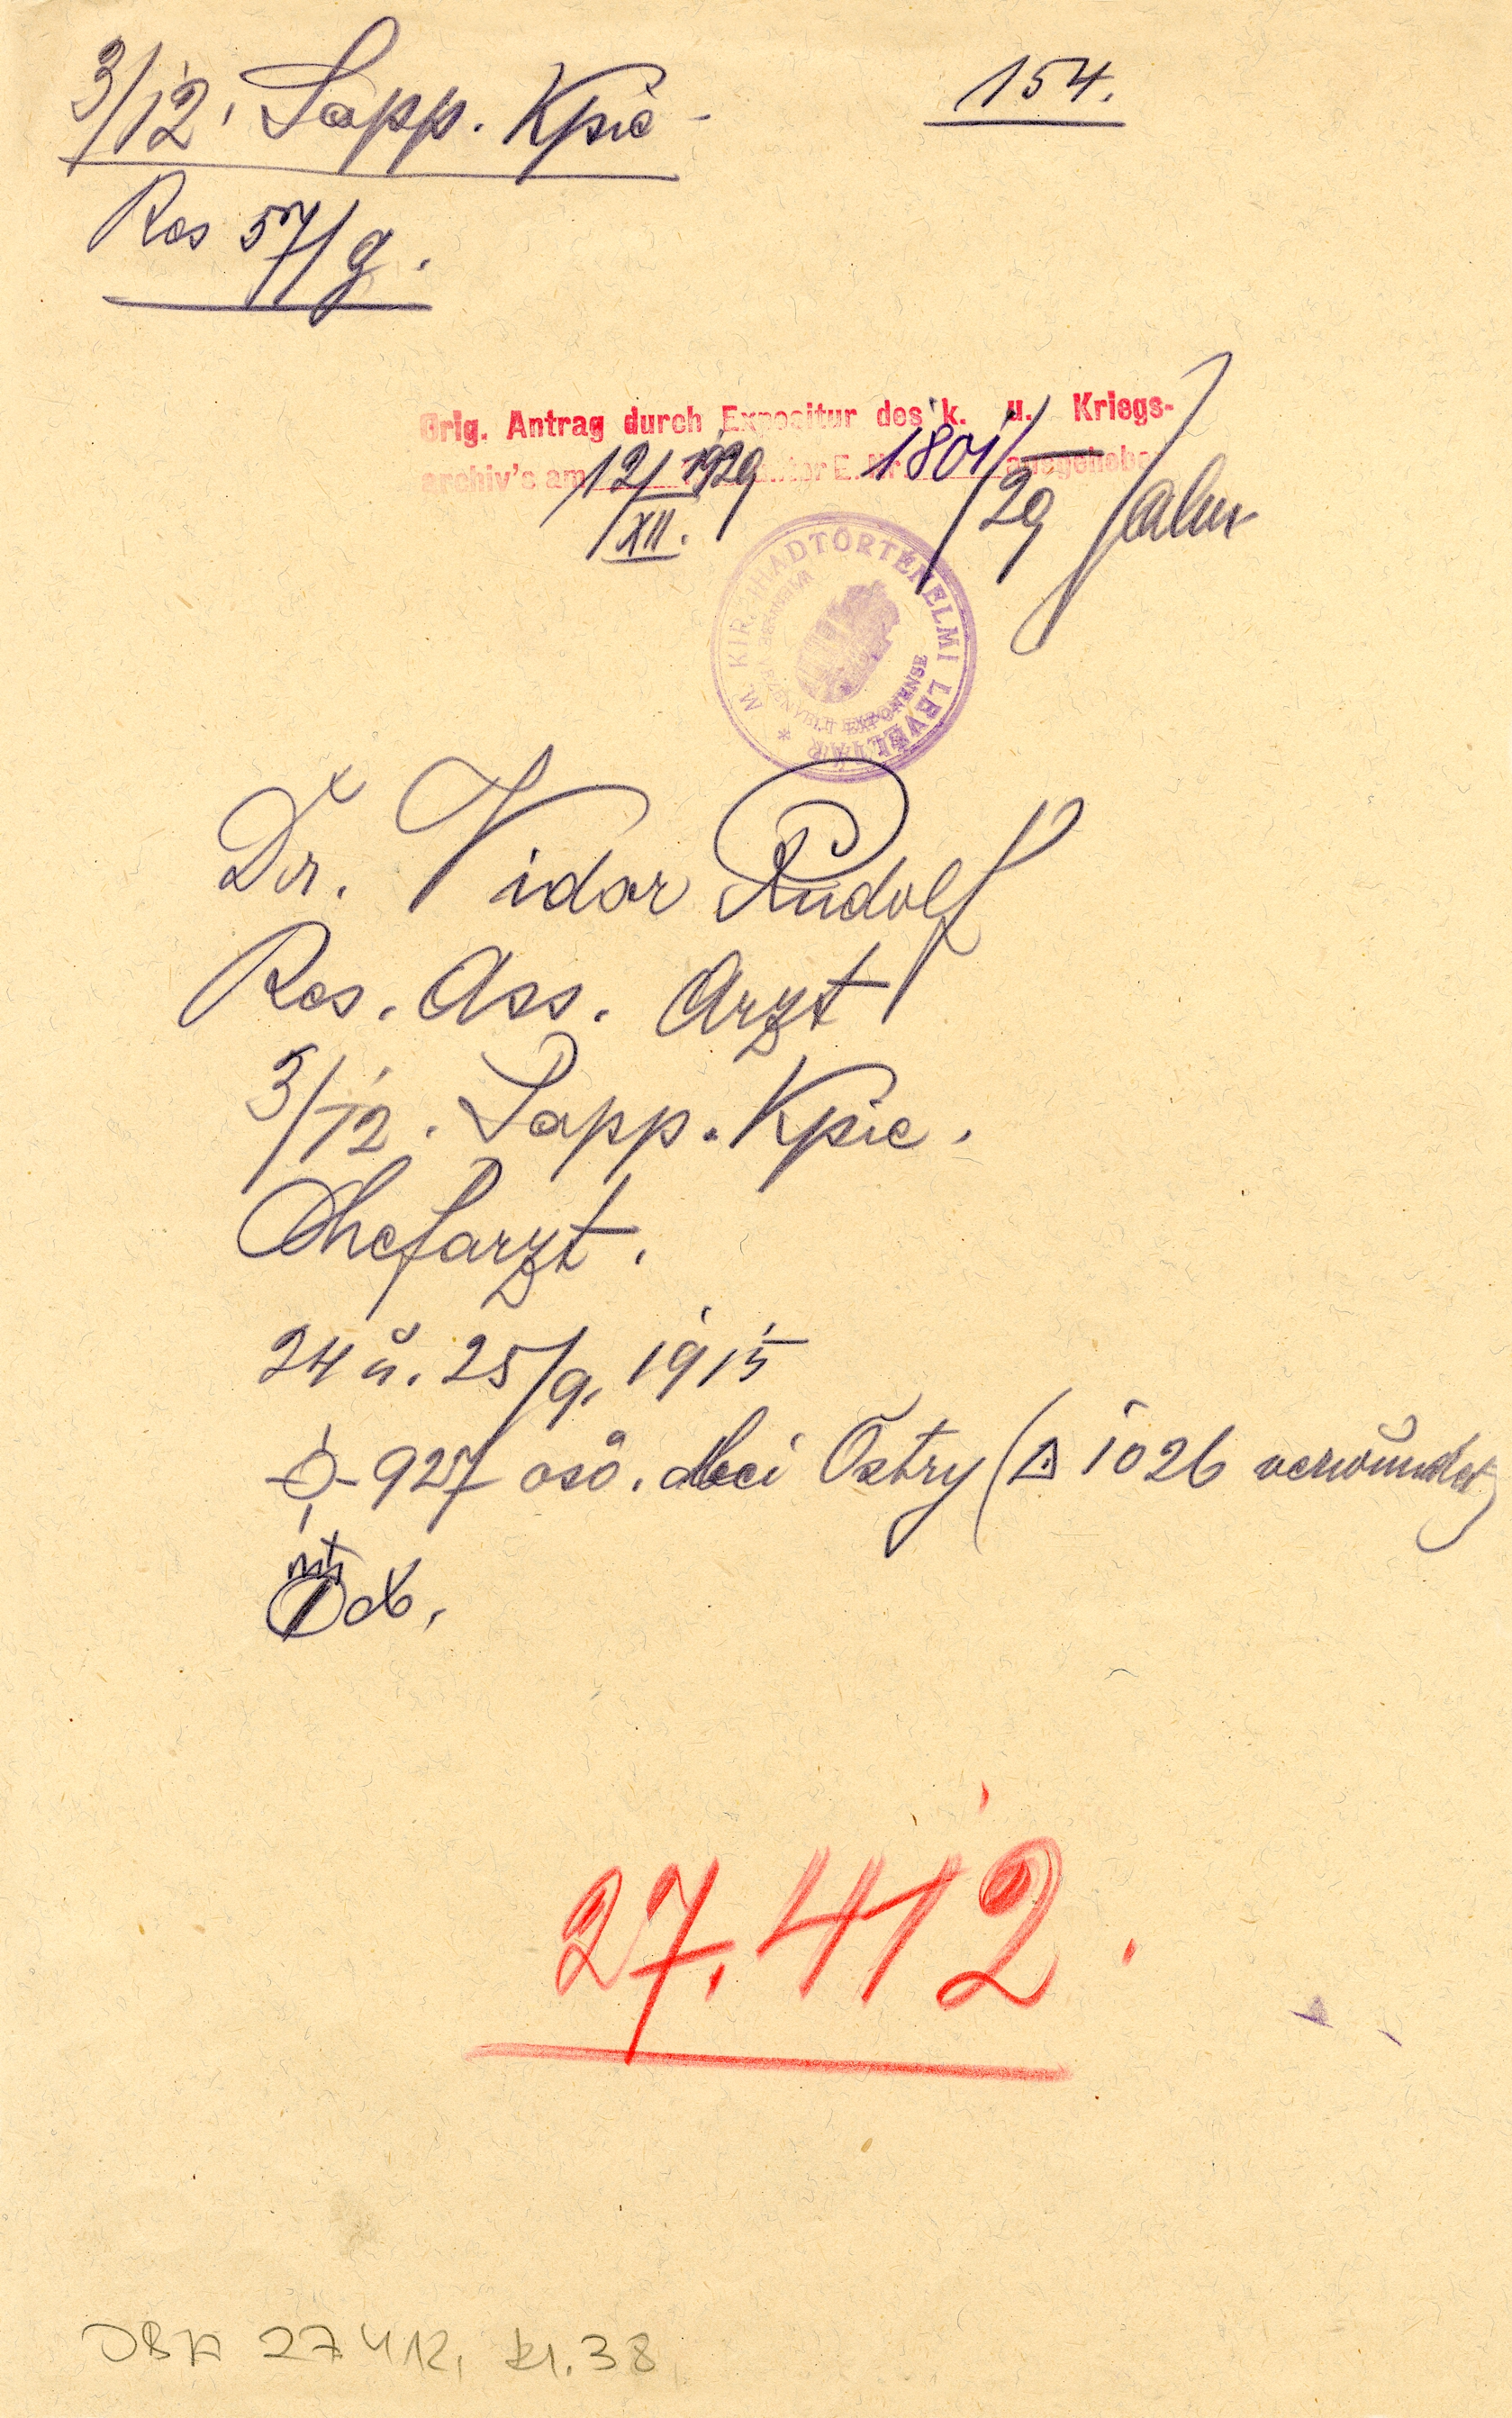 3/12. Sapp. Kpie
154.
Res 57/g.
Orig. Antrag durch Expositur des k. u. Kriegs-
archiv's am 12/XII. 1929 unter E. Nr. 1801/29 ausgehoben
M. KIR. HADTÖRTÉNELMI LEVÉLTÁR
Dr. Vidor Rudolf
Res. Ass. Arzt
3/12. Sapp. Kpie.
Chefarzt.
24 u. 25/9. 1915
927 osö. bei Ostry (△ 1026 verwundet)
27.412.
27412, 38